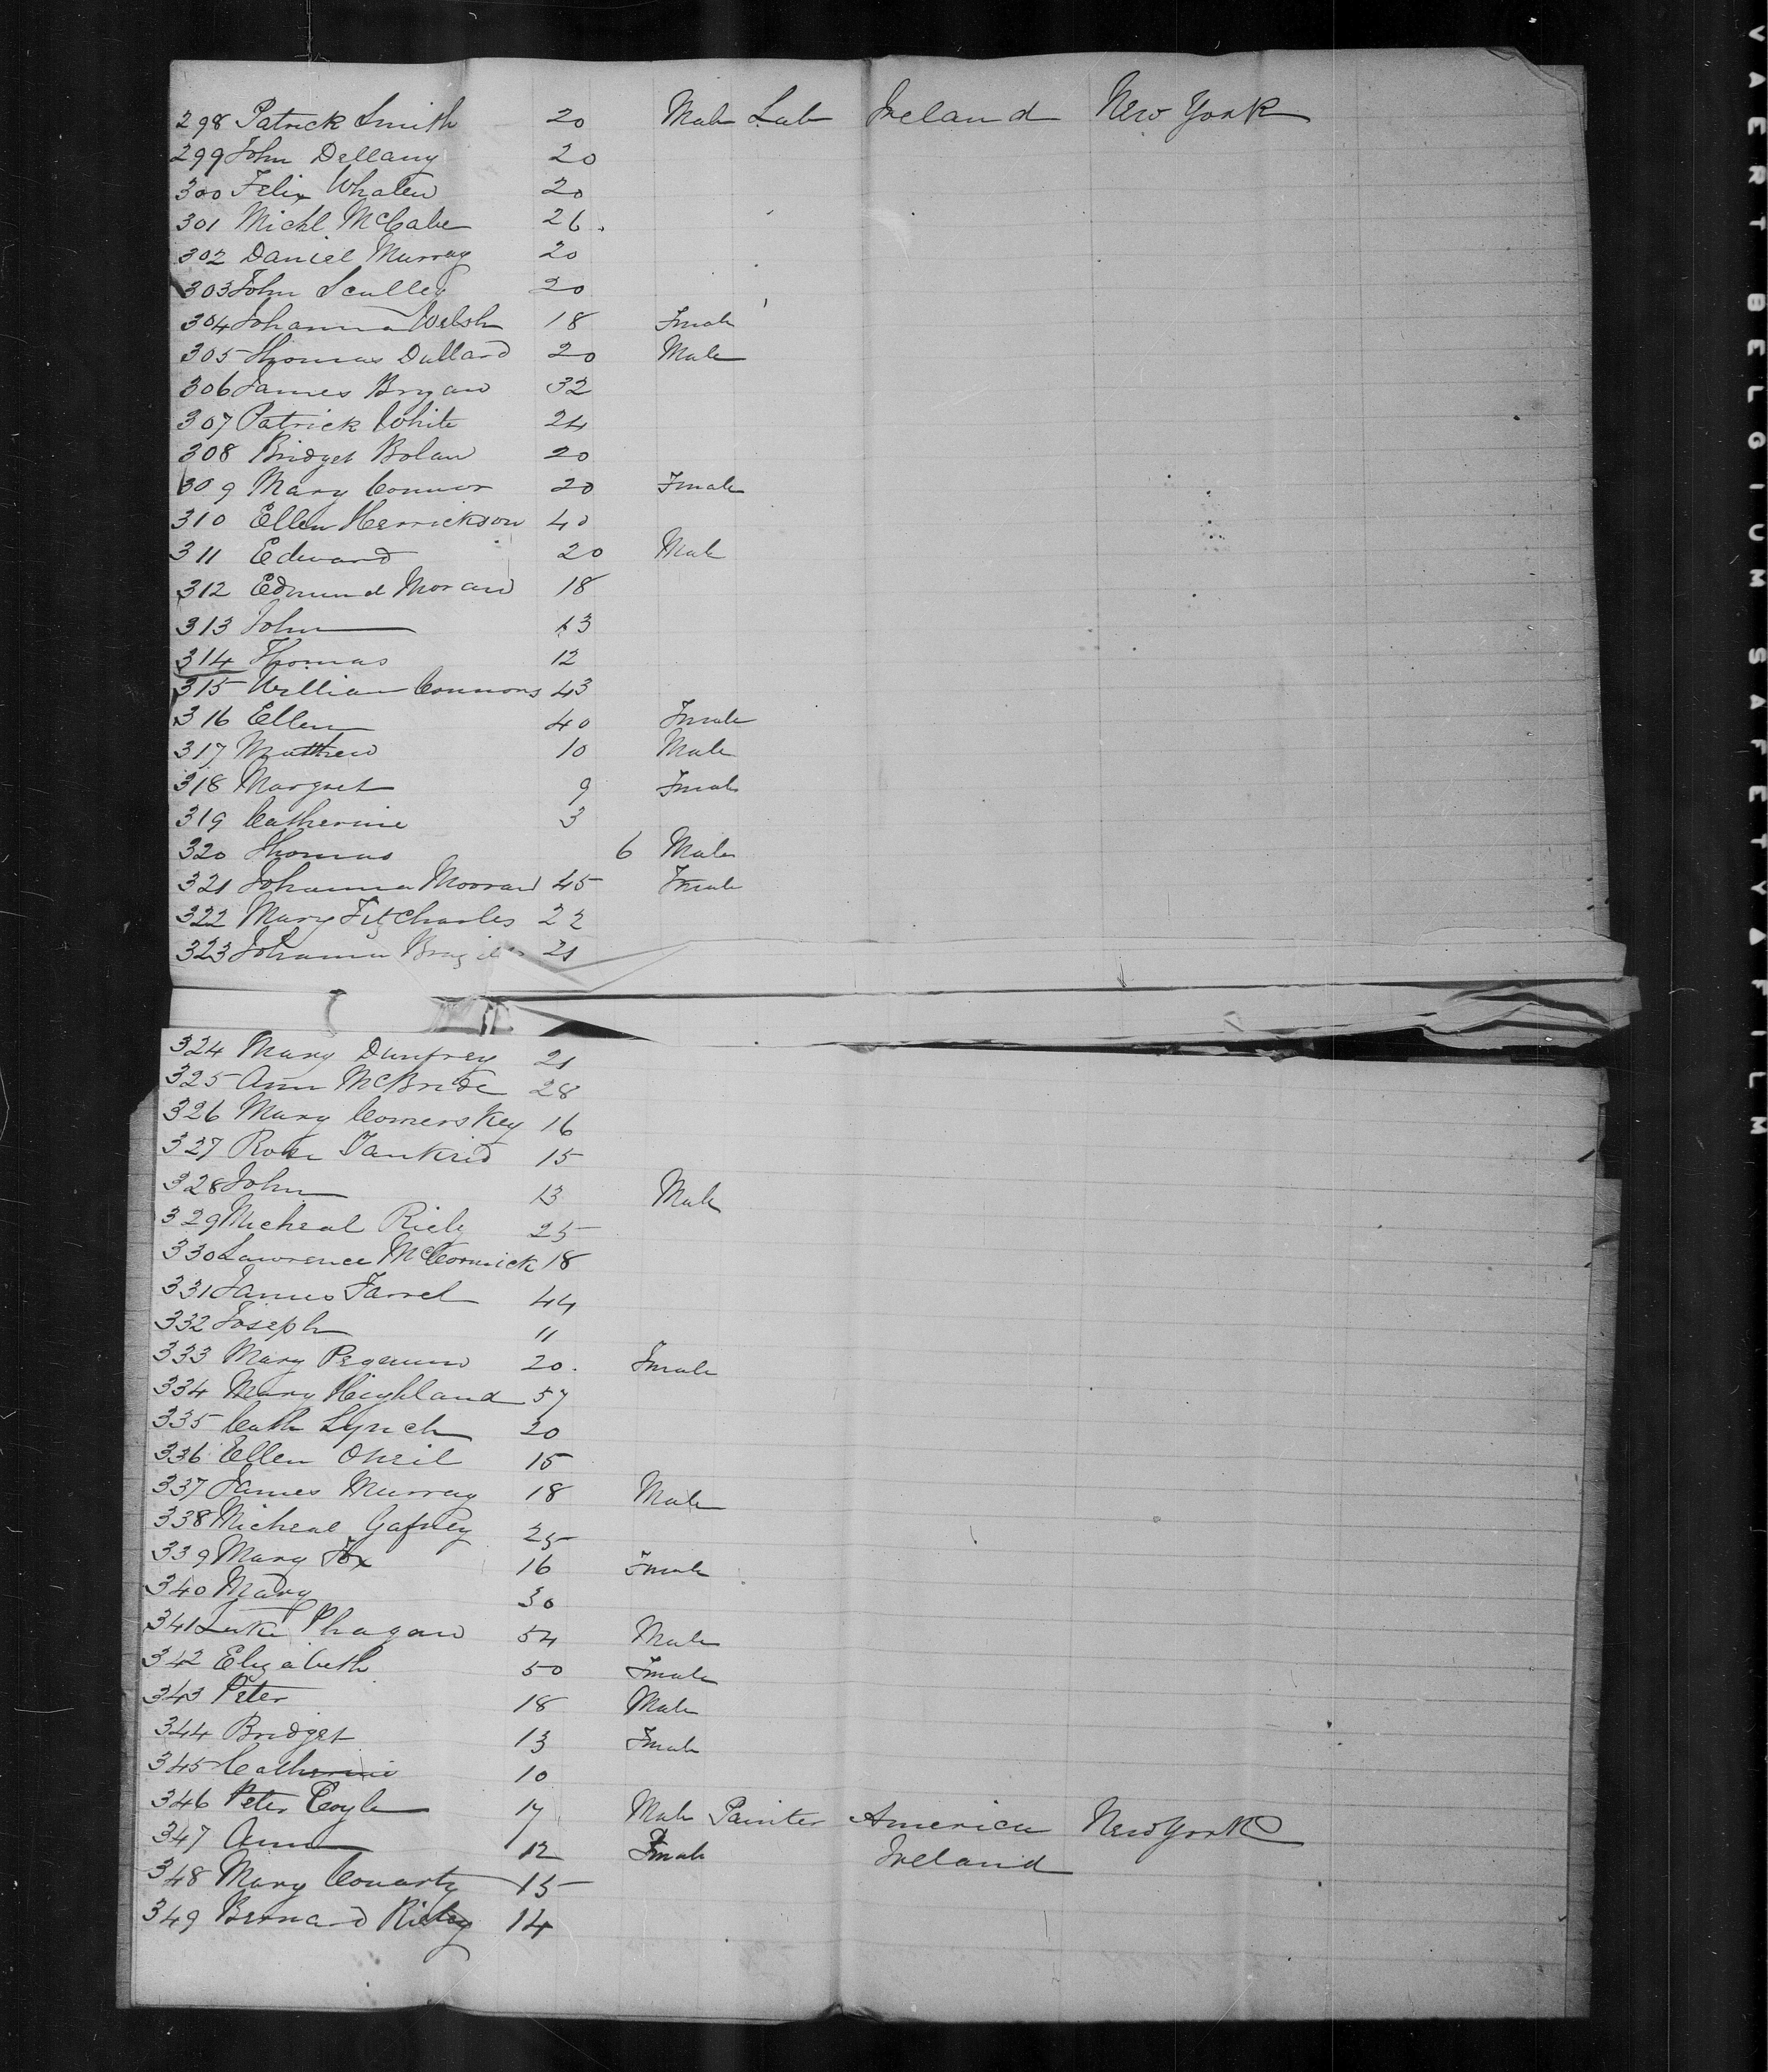 298 Patrick Smith 20 Male Lab Ireland New York
299 John Dellany 20
300 Felix Whalen 20
301 Michl McCabe 26
302 Daniel Murray 20
303 John Sculley 20
304 Johanna Welsh 18 Female
305 Thomas Dullard 20 Male
306 James Bryan 32
307 Patrick White 24
308 Bridget Bolan 20
309 Mary Connor 20 Female
310 Ellen Herrickson 40
311 Edward 20 Male
312 Edmund Moran 18
313 John 13
314 Thomas 12
315 William Connors 43
316 Ellen 40 Female
317 Matthew 10 Male
318 Margret 9 Female
319 Catherine 3
320 Thomas 6 Male
321 Johanna Mooran 45 Female
322 Mary FitzCharles 22
323 Johanna 21
324 Mary Dunfrey 21
325 Ann McBride 28
326 Mary Comerskey 16
327 Rose Tankrid 15
328 John 13 Male
329 Micheal Riely 25
330 Lawrence McCormick 18
331 James Farrel 44
332 Joseph 11
333 Mary 20 Female
334 Mary Highland 57
335 Cath Lynch 20
336 Ellen Oneil 15
337 James Murray 18 Male
338 Micheal Gafney 25
339 Mary Fox 16 Female
340 Mary 30
341 Luke Phagan 54 Male
342 Elizabeth 50 Female
343 Peter 18 Male
344 Bridget 13 Female
345 Catherine 10
346 Peter Coyle 17 Male Painter America New York
347 Ann 12 Female Ireland
348 Mary Conarty 15
349 Bernard Rieley 14
VAERT BELGIUM SAFETY FILM